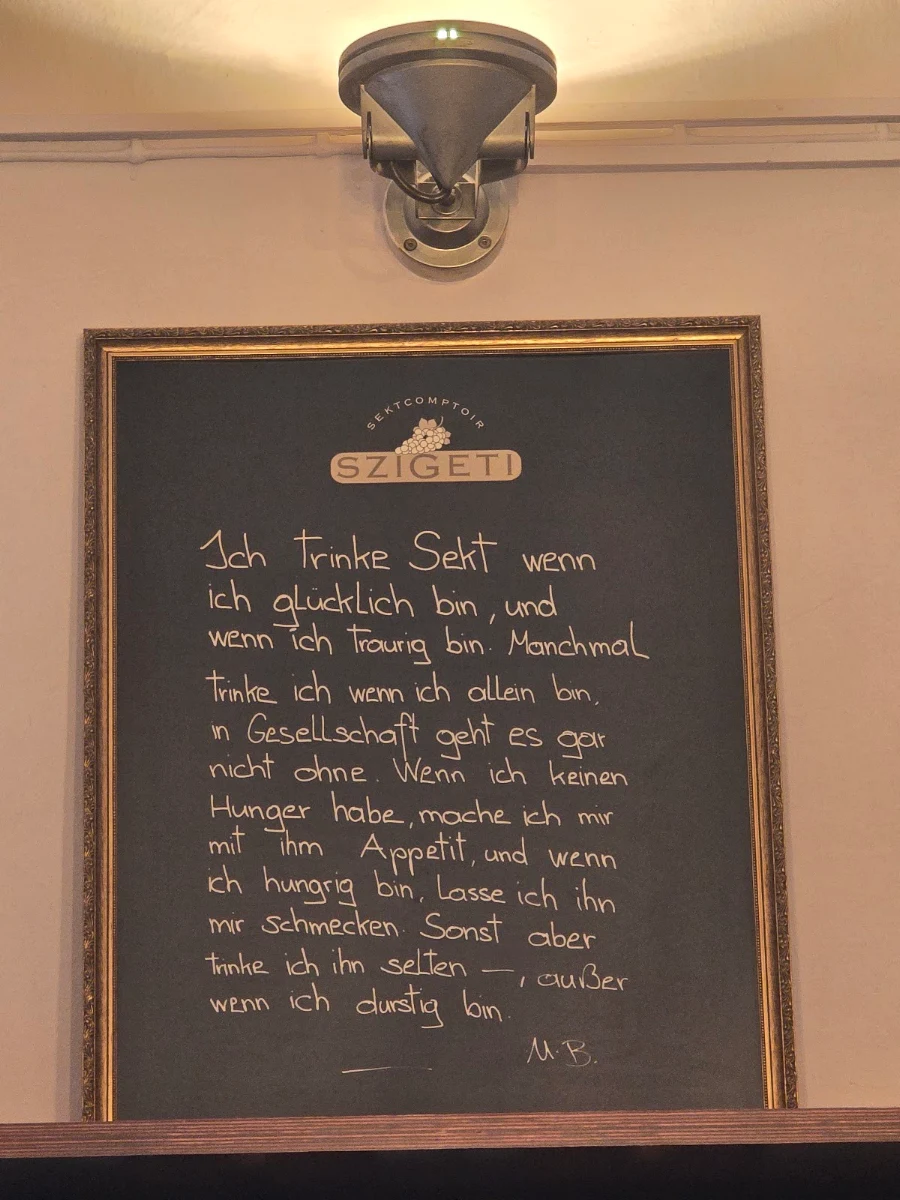 SEKTCOMPTOIR
SZIGETI
Ich trinke Sekt wenn
ich glücklich bin, und
wenn ich traurig bin. Manchmal
trinke ich wenn ich allein bin,
in Gesellschaft geht es gar
nicht ohne. Wenn ich keinen
Hunger habe, mache ich mir
mit ihm Appetit, und wenn
ich hungrig bin, lasse ich ihn
mir schmecken. Sonst aber
trinke ich ihn selten —, außer
wenn ich durstig bin.
M.B.